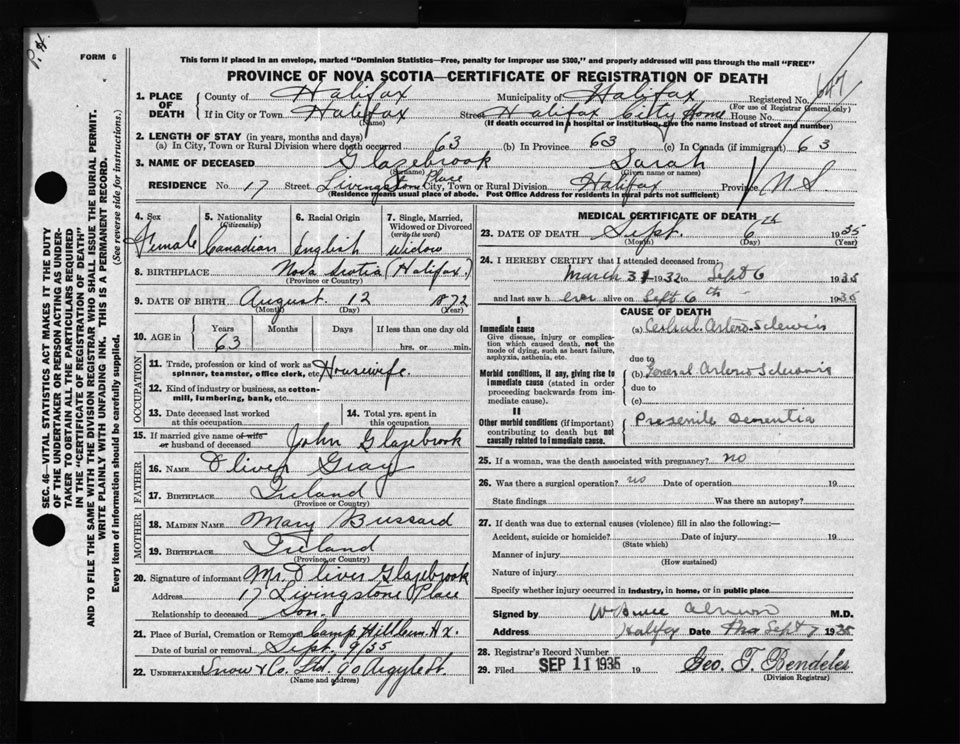 P. H.
FORM 6
This form if placed in an envelope, marked "Dominion Statistics—Free, penalty for improper use $300," and properly addressed will pass through the mail "FREE"
PROVINCE OF NOVA SCOTIA—CERTIFICATE OF REGISTRATION OF DEATH
SEC. 46—VITAL STATISTICS ACT MAKES IT THE DUTY
OF THE UNDERTAKER OR PERSON ACTING AS UNDER-
TAKER TO OBTAIN ALL THE PARTICULARS REQUIRED
IN THE "CERTIFICATE OF REGISTRATION OF DEATH"
AND TO FILE THE SAME WITH THE DIVISION REGISTRAR WHO SHALL ISSUE THE BURIAL PERMIT.
WRITE PLAINLY WITH UNFADING INK. THIS IS A PERMANENT RECORD.
Every item of information should be carefully supplied. (See reverse side for instructions.)
1. PLACE OF DEATH County of Halifax Municipality of Halifax Registered No. 647
(For use of Registrar General only)
If in City or Town Halifax Street Halifax City Home House No.
(Name) (If death occurred in a hospital or institution, give the name instead of street and number)
2. LENGTH OF STAY (in years, months and days)
(a) In City, Town or Rural Division where death occurred 63 (b) In Province 63 (c) In Canada (if immigrant) 63
3. NAME OF DECEASED Glazebrook Sarah
(Surname) (Given name or names)
RESIDENCE No. 17 Street Livingstone Place City, Town or Rural Division Halifax Province N S
(Residence means usual place of abode. Post Office Address for residents in rural parts not sufficient)
4. Sex Female
5. Nationality (Citizenship) Canadian
6. Racial Origin English
7. Single, Married, Widowed or Divorced (write the word) Widow
8. BIRTHPLACE Nova Scotia (Halifax.)
(Province or Country)
9. DATE OF BIRTH August 12 1872
(Month) (Day) (Year)
10. AGE in Years 63 Months Days If less than one day
hrs. or min.
OCCUPATION
11. Trade, profession or kind of work as spinner, teamster, office clerk, etc. Housewife.
12. Kind of industry or business, as cotton-mill, lumbering, bank, etc.
13. Date deceased last worked at this occupation
14. Total yrs. spent in this occupation
15. If married give name of wife or husband of deceased John Glazebrook
FATHER
16. NAME Oliver Gray
17. BIRTHPLACE Ireland
(Province or Country)
MOTHER
18. MAIDEN NAME Mary Bussard
19. BIRTHPLACE Ireland
(Province or Country)
20. Signature of informant Mr. Oliver Glazebrook
Address 17 Livingstone Place
Relationship to deceased Son.
21. Place of Burial, Cremation or Removal Camp Hill Cem. Hx.
Date of burial or removal Sept. 9/35
22. UNDERTAKER Snow & Co. Ltd. 90 Argyle St.
(Name and address)
MEDICAL CERTIFICATE OF DEATH
23. DATE OF DEATH Sept. 6th 1935
(Month) (Day) (Year)
24. I HEREBY CERTIFY that I attended deceased from:
March 31 1932 to Sept 6 1935
and last saw h er alive on Sept 6th 1935
CAUSE OF DEATH
I
Immediate cause
Give disease, injury or complication which caused death, not the mode of dying, such as heart failure, asphyxia, asthenia, etc.
(a) Cerebral Arterio-Sclerosis
due to
Morbid conditions, if any, giving rise to immediate cause (stated in order proceeding backwards from immediate cause).
(b) General Arterio Sclerosis
due to
(c)
II
Other morbid conditions (if important) contributing to death but not causally related to immediate cause.
Presenile Dementia
25. If a woman, was the death associated with pregnancy? no
26. Was there a surgical operation? no Date of operation 19
State findings Was there an autopsy?
27. If death was due to external causes (violence) fill in also the following:—
Accident, suicide or homicide? Date of injury 19
(State which)
Manner of injury
(How sustained)
Nature of injury
Specify whether injury occurred in industry, in home, or in public place
Signed by W Bruce Almon M.D.
Address Halifax Date Sept 7 1935
28. Registrar's Record Number
29. Filed SEP 11 1935 19 Geo. T. Bendeler
(Division Registrar)